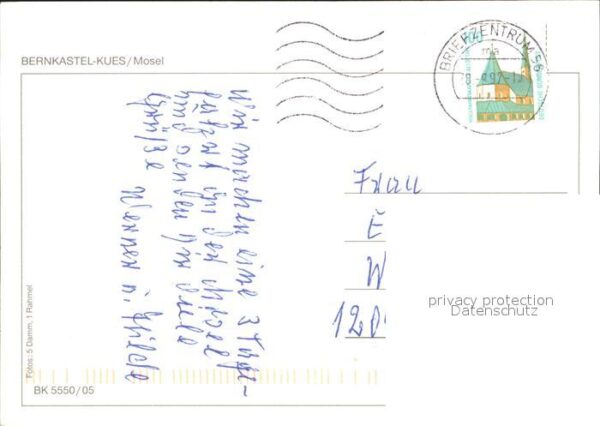 BERNKASTEL-KUES/Mosel
BRIEFZENTRUM 56
Wir machen eine 3 Tage-
fahrt an der Mosel
und senden Dir viele
Grüße Werner u. Hilde
Frau
E
W
120
privacy protection
Datenschutz
Fotos: 5 Damm, 1 Rahmel
BK 5550/05